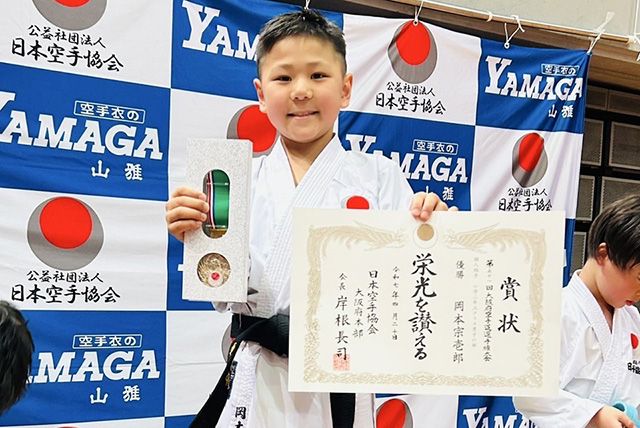 公益社団法人
日本空手協会
YAMAGA
公益社団法人
日本空手協会
空手衣の
YAMAGA
山雅
空手衣の
YAMAGA
山雅
YAMAGA
山雅
公益社団法人
公益社団法人
日本空手協会
空手衣の
YAMAGA
山雅
賞状
大阪府空手道選手権大会
優勝 岡本宗壱郎
栄光を讃える
令和七年四月二十日
日本空手協会
大阪府本部
会長 岸根長司
岡本
YAMAGA